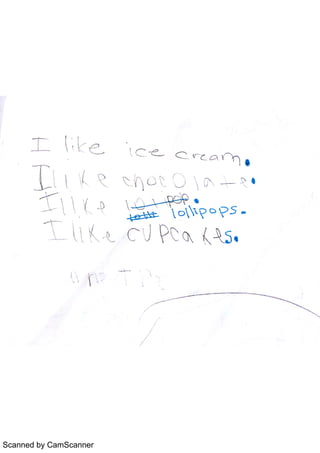 I like ice cream.
I like chocolate.
I like lollipops.
I like cupcakes.
Scanned by CamScanner